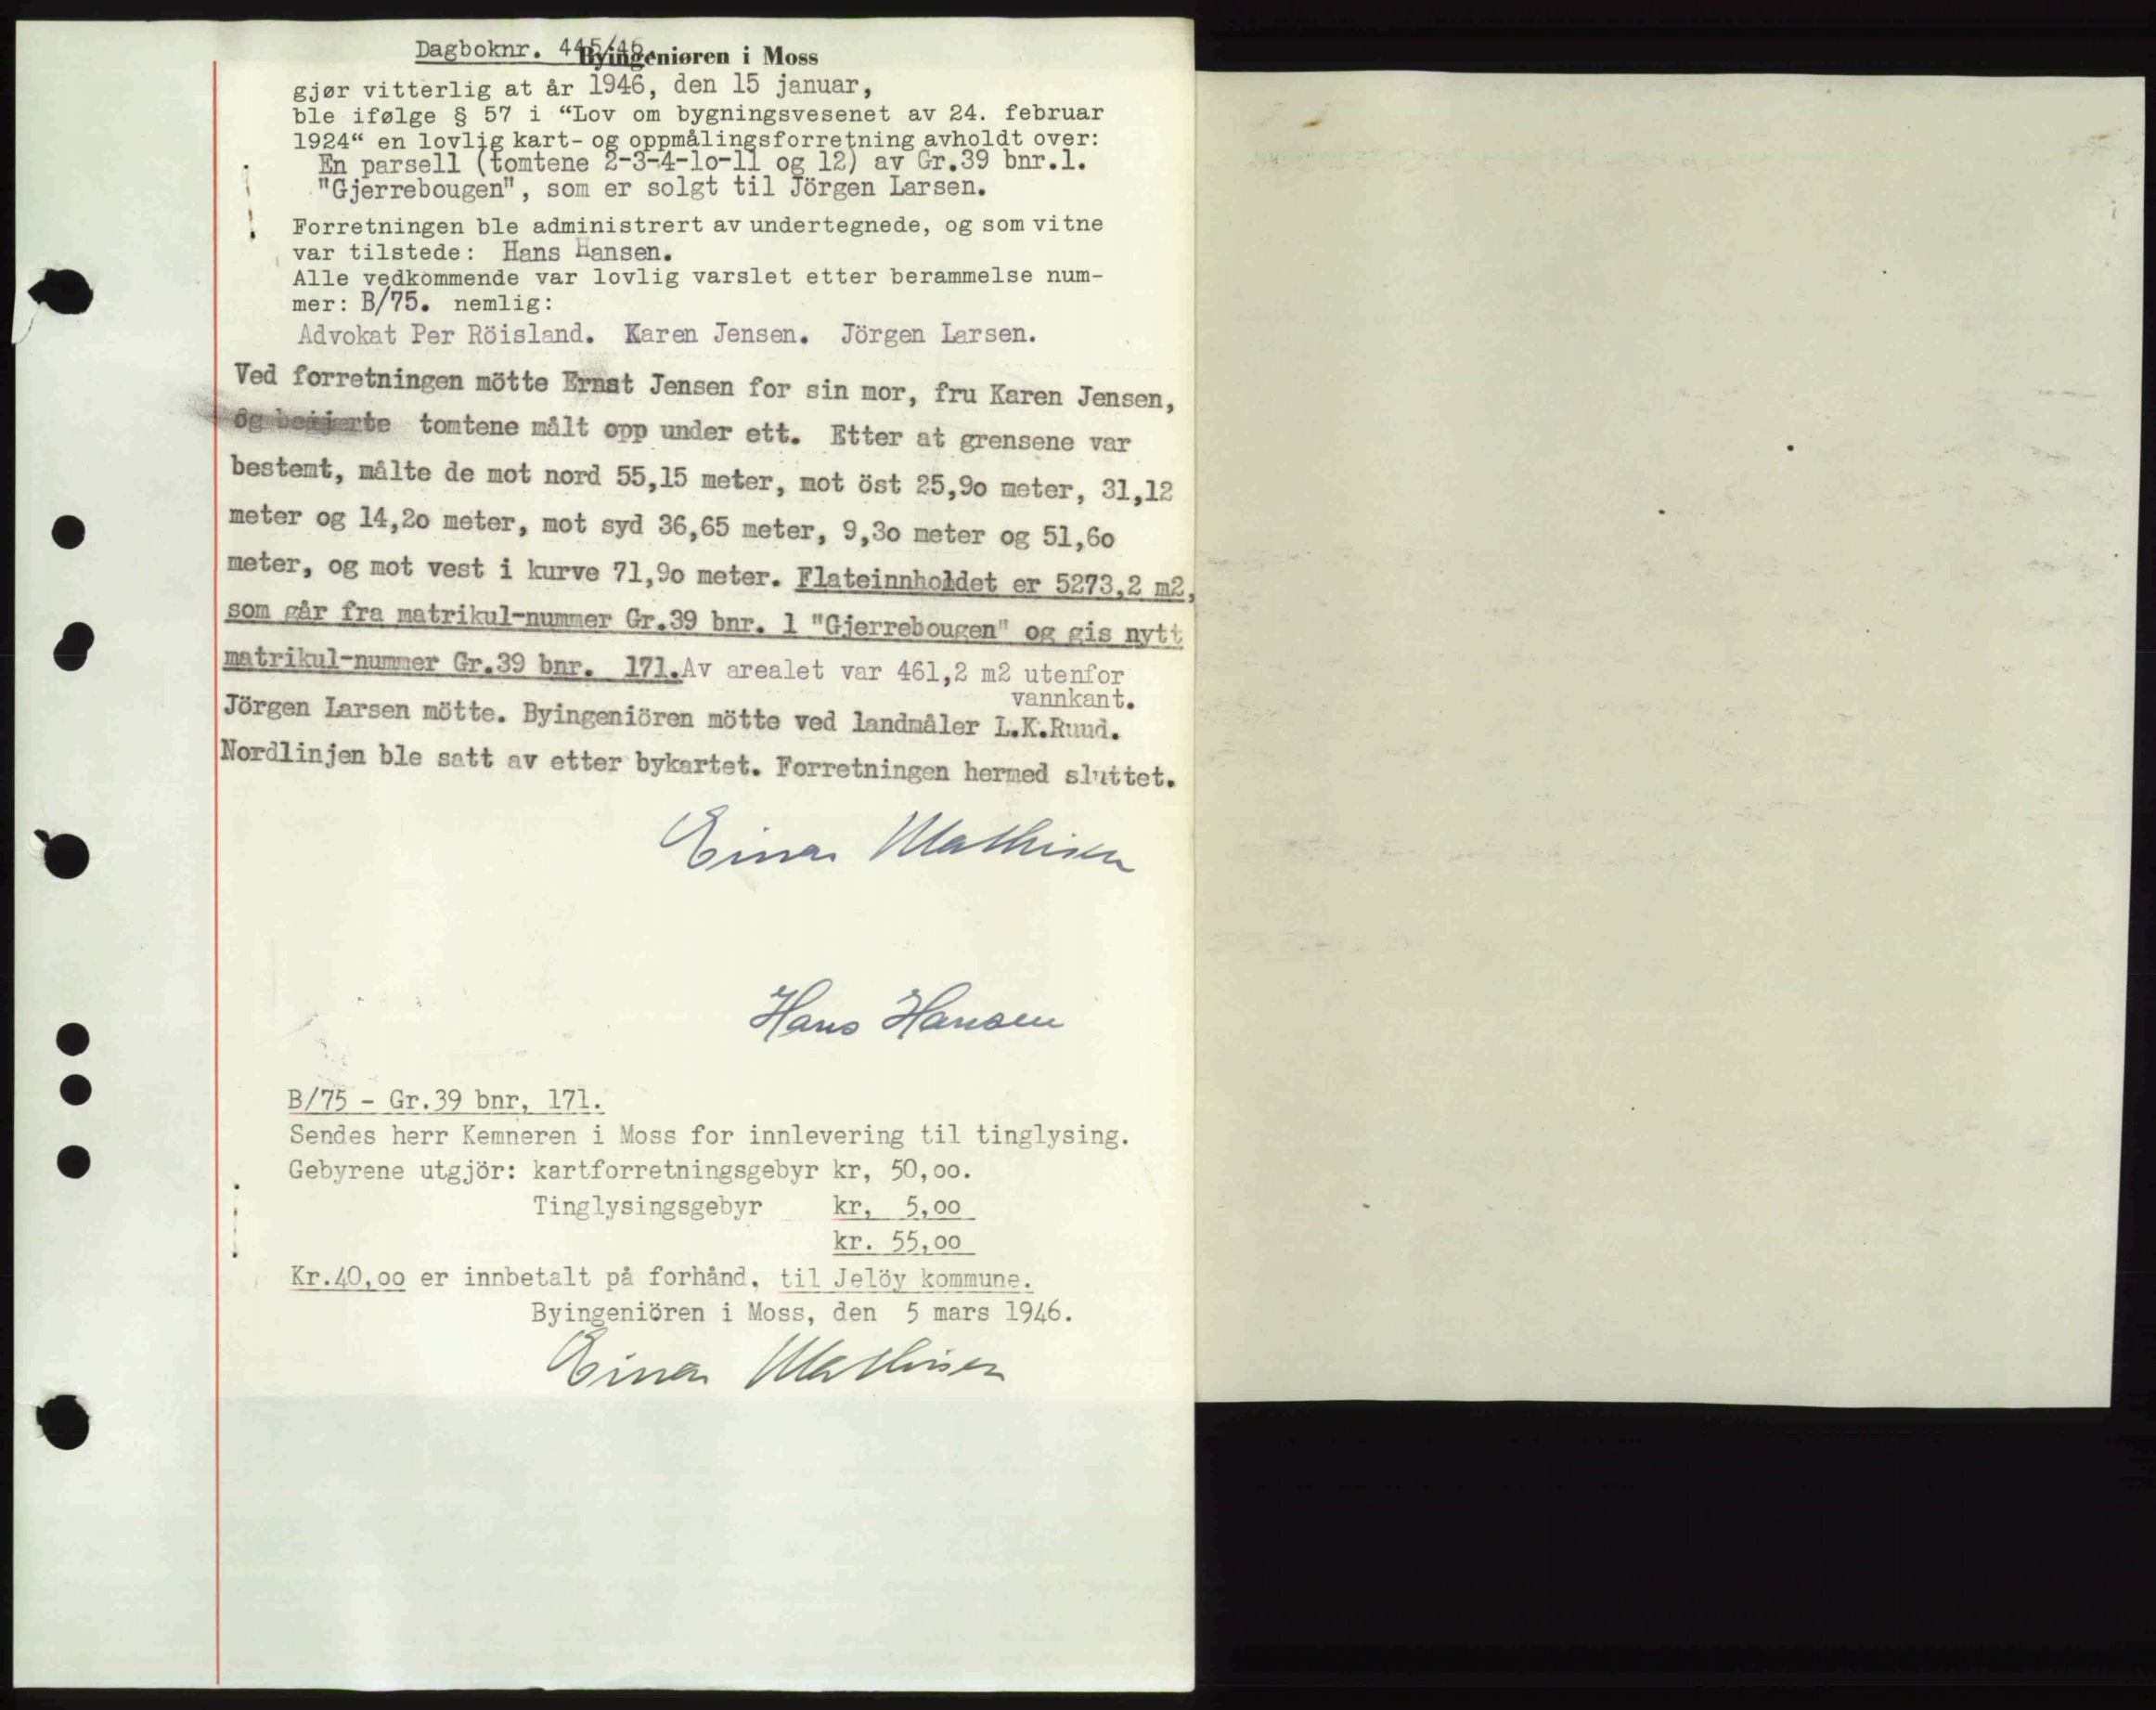 Dagboknr. 445/46.
Byingeniøren i Moss
gjør vitterlig at år 1946, den 15 januar,
ble ifølge § 57 i “Lov om bygningsvesenet av 24. februar
1924“ en lovlig kart- og oppmålingsforretning avholdt over:
En parsell (tomtene 2-3-4-lo-ll og 12) av Gr.39 bnr.1.
"Gjerrebougen", som er solgt til Jörgen Larsen.
Forretningen ble administrert av undertegnede, og som vitne
var tilstede: Hans Hansen.
Alle vedkommende var lovlig varslet etter berammelse num-
mer: B/75. nemlig:
Advokat Per Röisland. Karen Jensen. Jörgen Larsen.
Ved forretningen mötte Ernst Jensen for sin mor, fru Karen Jensen,
og begjærte tomtene målt opp under ett. Etter at grensene var
bestemt, målte de mot nord 55,15 meter, mot öst 25,9o meter, 31,12
meter og 14,2o meter, mot syd 36,65 meter, 9,3o meter og 51,6o
meter, og mot vest i kurve 71,9o meter. Flateinnholdet er 5273,2 m2,
som går fra matrikul-nummer Gr.39 bnr. 1 "Gjerrebougen" og gis nytt
matrikul-nummer Gr.39 bnr. 171. Av arealet var 461,2 m2 utenfor
vannkant.
Jörgen Larsen mötte. Byingeniören mötte ved landmåler L.K.Ruud.
Nordlinjen ble satt av etter bykartet. Forretningen hermed sluttet.
Einar Mathisen
Hans Hansen
B/75 - Gr.39 bnr, 171.
Sendes herr Kemneren i Moss for innlevering til tinglysing.
Gebyrene utgjör: kartforretningsgebyr kr, 50,oo.
Tinglysingsgebyr kr, 5,oo
kr. 55,oo
Kr.40,oo er innbetalt på forhånd, til Jelöy kommune.
Byingeniören i Moss, den 5 mars 1946.
Einar Mathisen